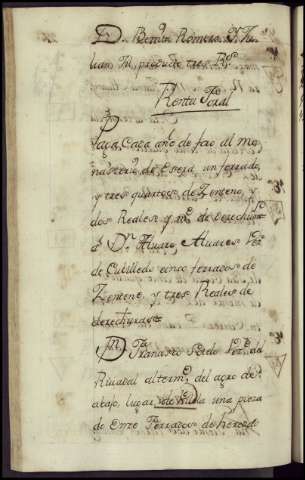 Dn. Benito Romero, y Ju
lian
Renta Foral
Paga, Cada año de foro al mo
nasterio de Osera, un ferrado,
y tres quartos de Zenteno, y
dos Reales y mo. de derechuras
a Dn. Alvaro Alvares Vo.
de Cubilledo cinco ferrados de
Zenteno, y tres Reales de
derechuras
Francisco Pardo
Rivadal al termo. del agro de
abajo, lugar una pieza
de Onze Ferrados de